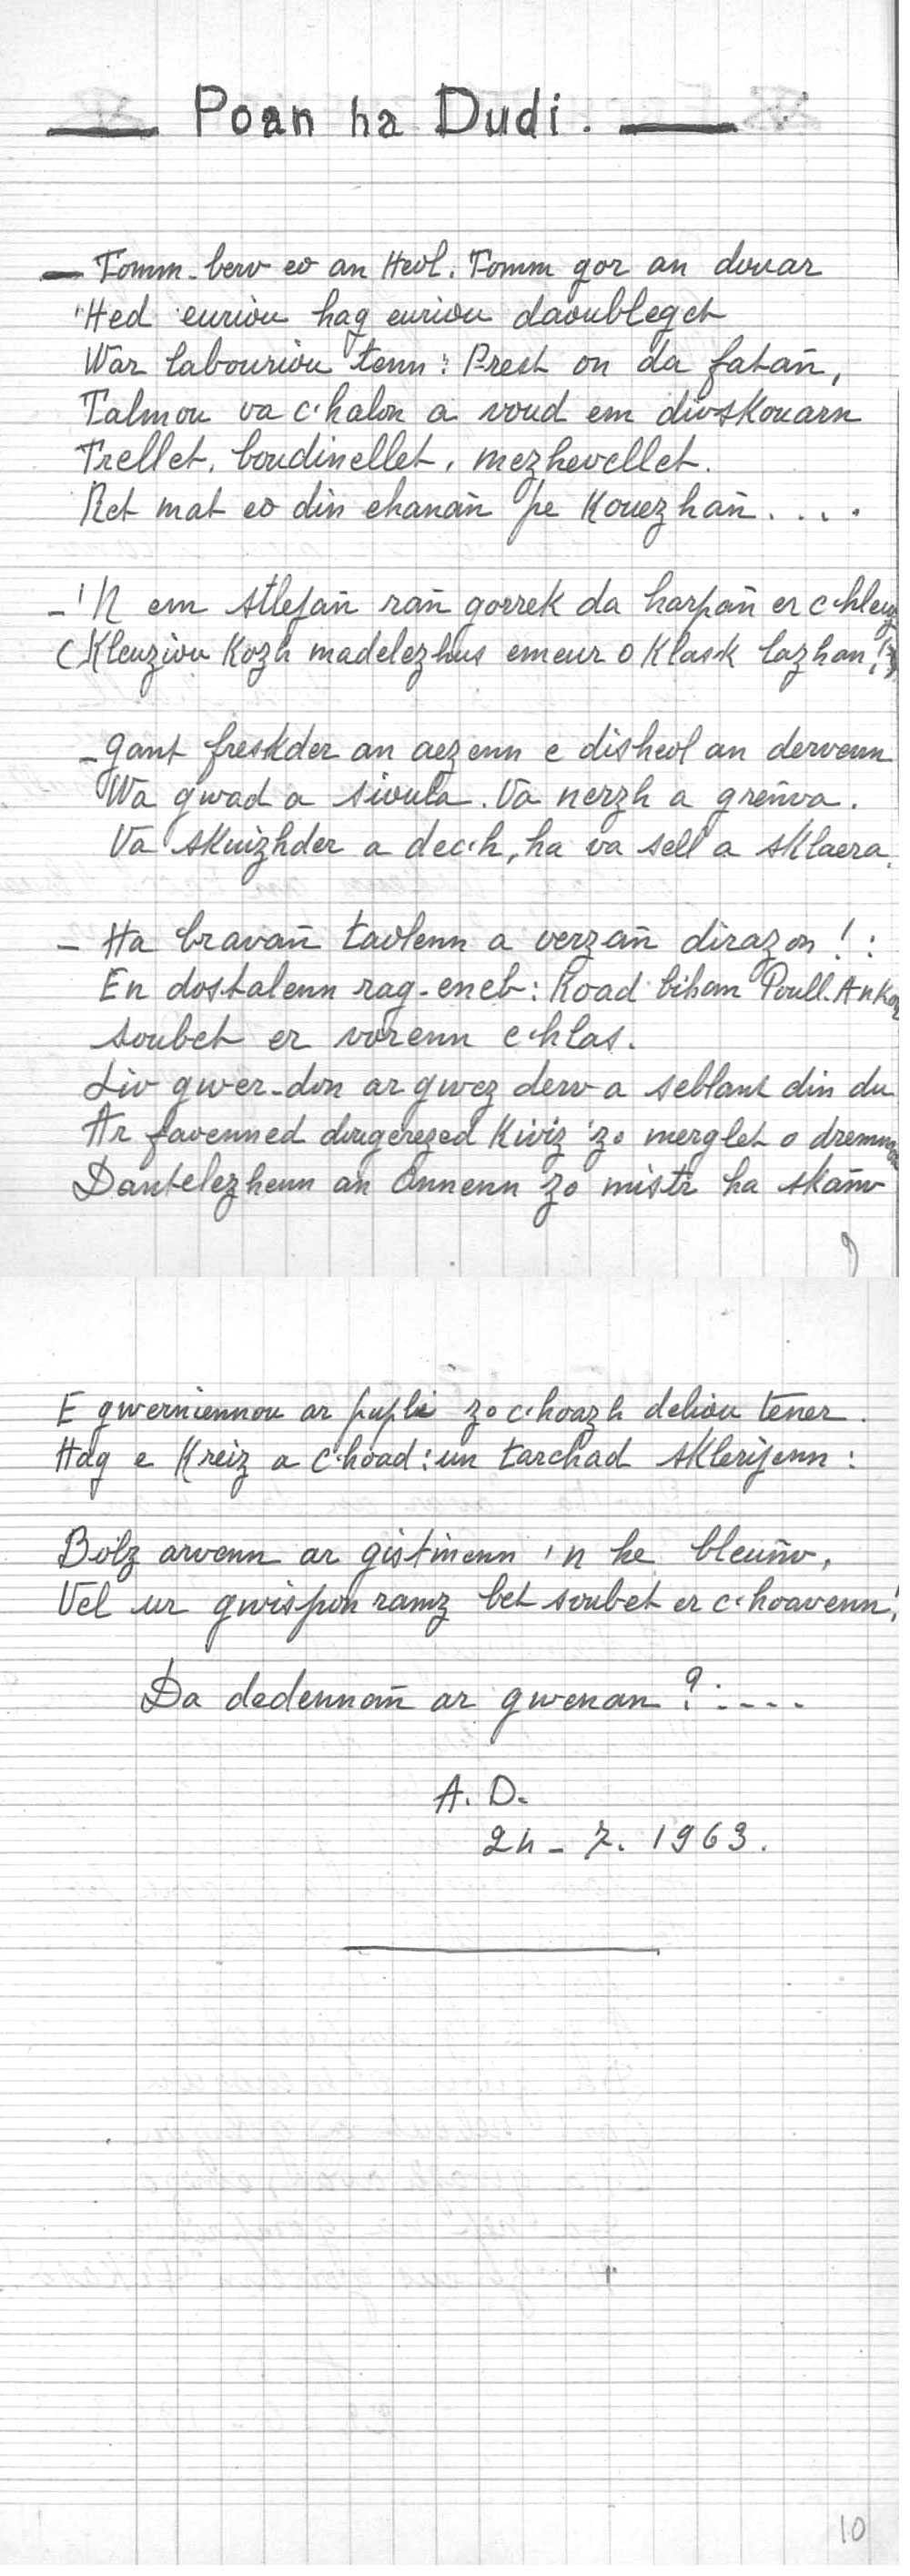 Poan ha Dudi.
- Tomm-berv eo an Heol. Tomm gor an douar
'Hed euriou hag euriou daoubleget
War labouriou tenn : Prest on da fatañ,
Talmou va c'halon a voud em divskouarn
Trellet, boudinellet, mezhevellet.
Ret mat eo din ehanañ pe kouezhañ....
- 'N em stlejañ rañ gorrek da harpañ er c'hleuz
(Kleuziou Kozh madelezhus emeur o klask lazhan!)
- Gant freskder an aezenn e disheol an dervenn
Va gwad a sioula. Va nerzh a greñva.
Va skuizhder a dec'h, ha va sell a sklaera.
- Ha bravañ taolenn a verzañ dirazon ! :
En dostalenn rag-eneb : Koad bihan Poull-Ankou
soubet er vorenn c'hlas.
Liv gwer-don ar gwez derv a seblant din du
Ar favenned dougerezed kiviz 'zo merglet o dremmou
Dantelezhenn an Onnenn zo mistr ha skañv
9
E gwerniennou ar pupli zo c'hoazh deliou tener.
Hag e kreiz a c'hoad : un tarchad sklerijenn :
Bolz arvenn ar gistinenn 'n he bleuñv,
Vel ur gwispon ramz bet soubet er c'hoavenn!
Da dedennañ ar gwenan ?:....
A. D.
24 - 7. 1963.
10